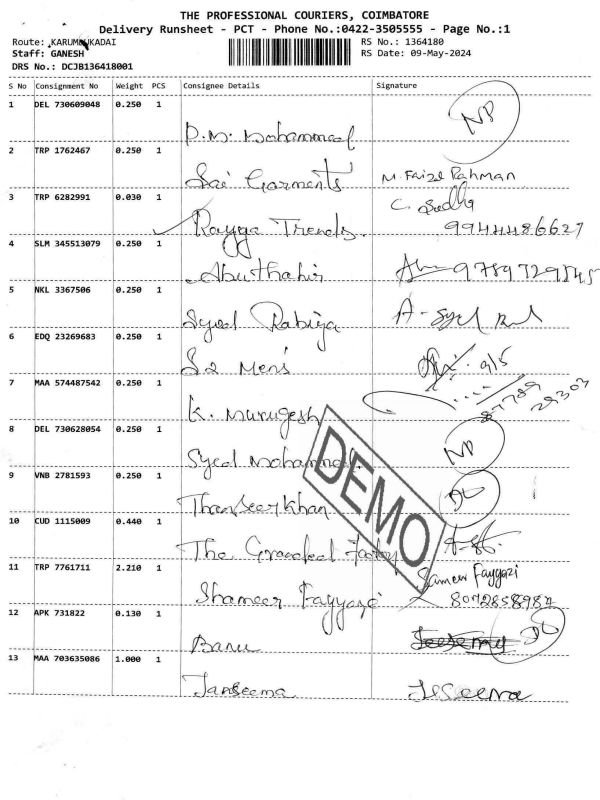 THE PROFESSIONAL COURIERS, COIMBATORE
Delivery Runsheet - PCT - Phone No.:0422-3505555 - Page No.:1
Route: KARUMBUKADAI RS No.: 1364180
Staff: GANESH RS Date: 09-May-2024
DRS No.: DCJB136418001
S No Consignment No Weight PCS Consignee Details Signature
1 DEL 730609048 0.250 1
D.M. Mohammed NP
2 TRP 1762467 0.250 1
Sai Garments M. Faizal Rahman
3 TRP 6282991 0.030 1 C. Sudha
Rayga Trends. 9944486627
4 SLM 345513079 0.250 1
Abuthahir 9789729545
5 NKL 3367506 0.250 1
Syed Rabiya A-Syed
6 EDQ 23269683 0.250 1
S2 Men's 9/5
7 MAA 574487542 0.250 1 87789
K. Murugesh 29303
8 DEL 730628054 0.250 1
Syed Mohammed. NP
9 VNB 2781593 0.250 1
Thanseer Khan DL
10 CUD 1115009 0.440 1
The Branded Factory
11 TRP 7761711 2.210 1 Sameer Fayyazi
Shameer Fayyazi 8072858984
12 APK 731822 0.130 1
Banu DL
13 MAA 703635086 1.000 1
Tanseema
DEMO